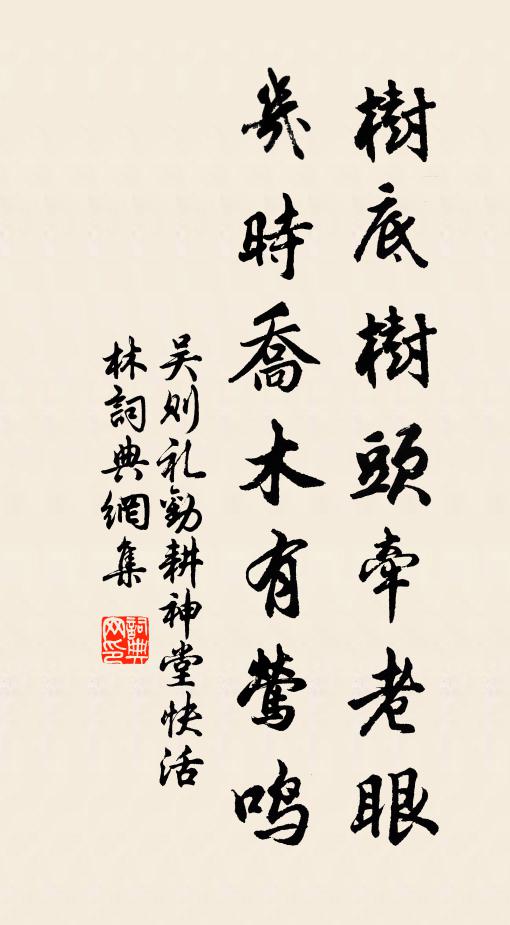 樹底樹頭牽老眼
幾時喬木有鶯鳴
吴则礼勸耕神堂快活
林詞典網集
詞典网印